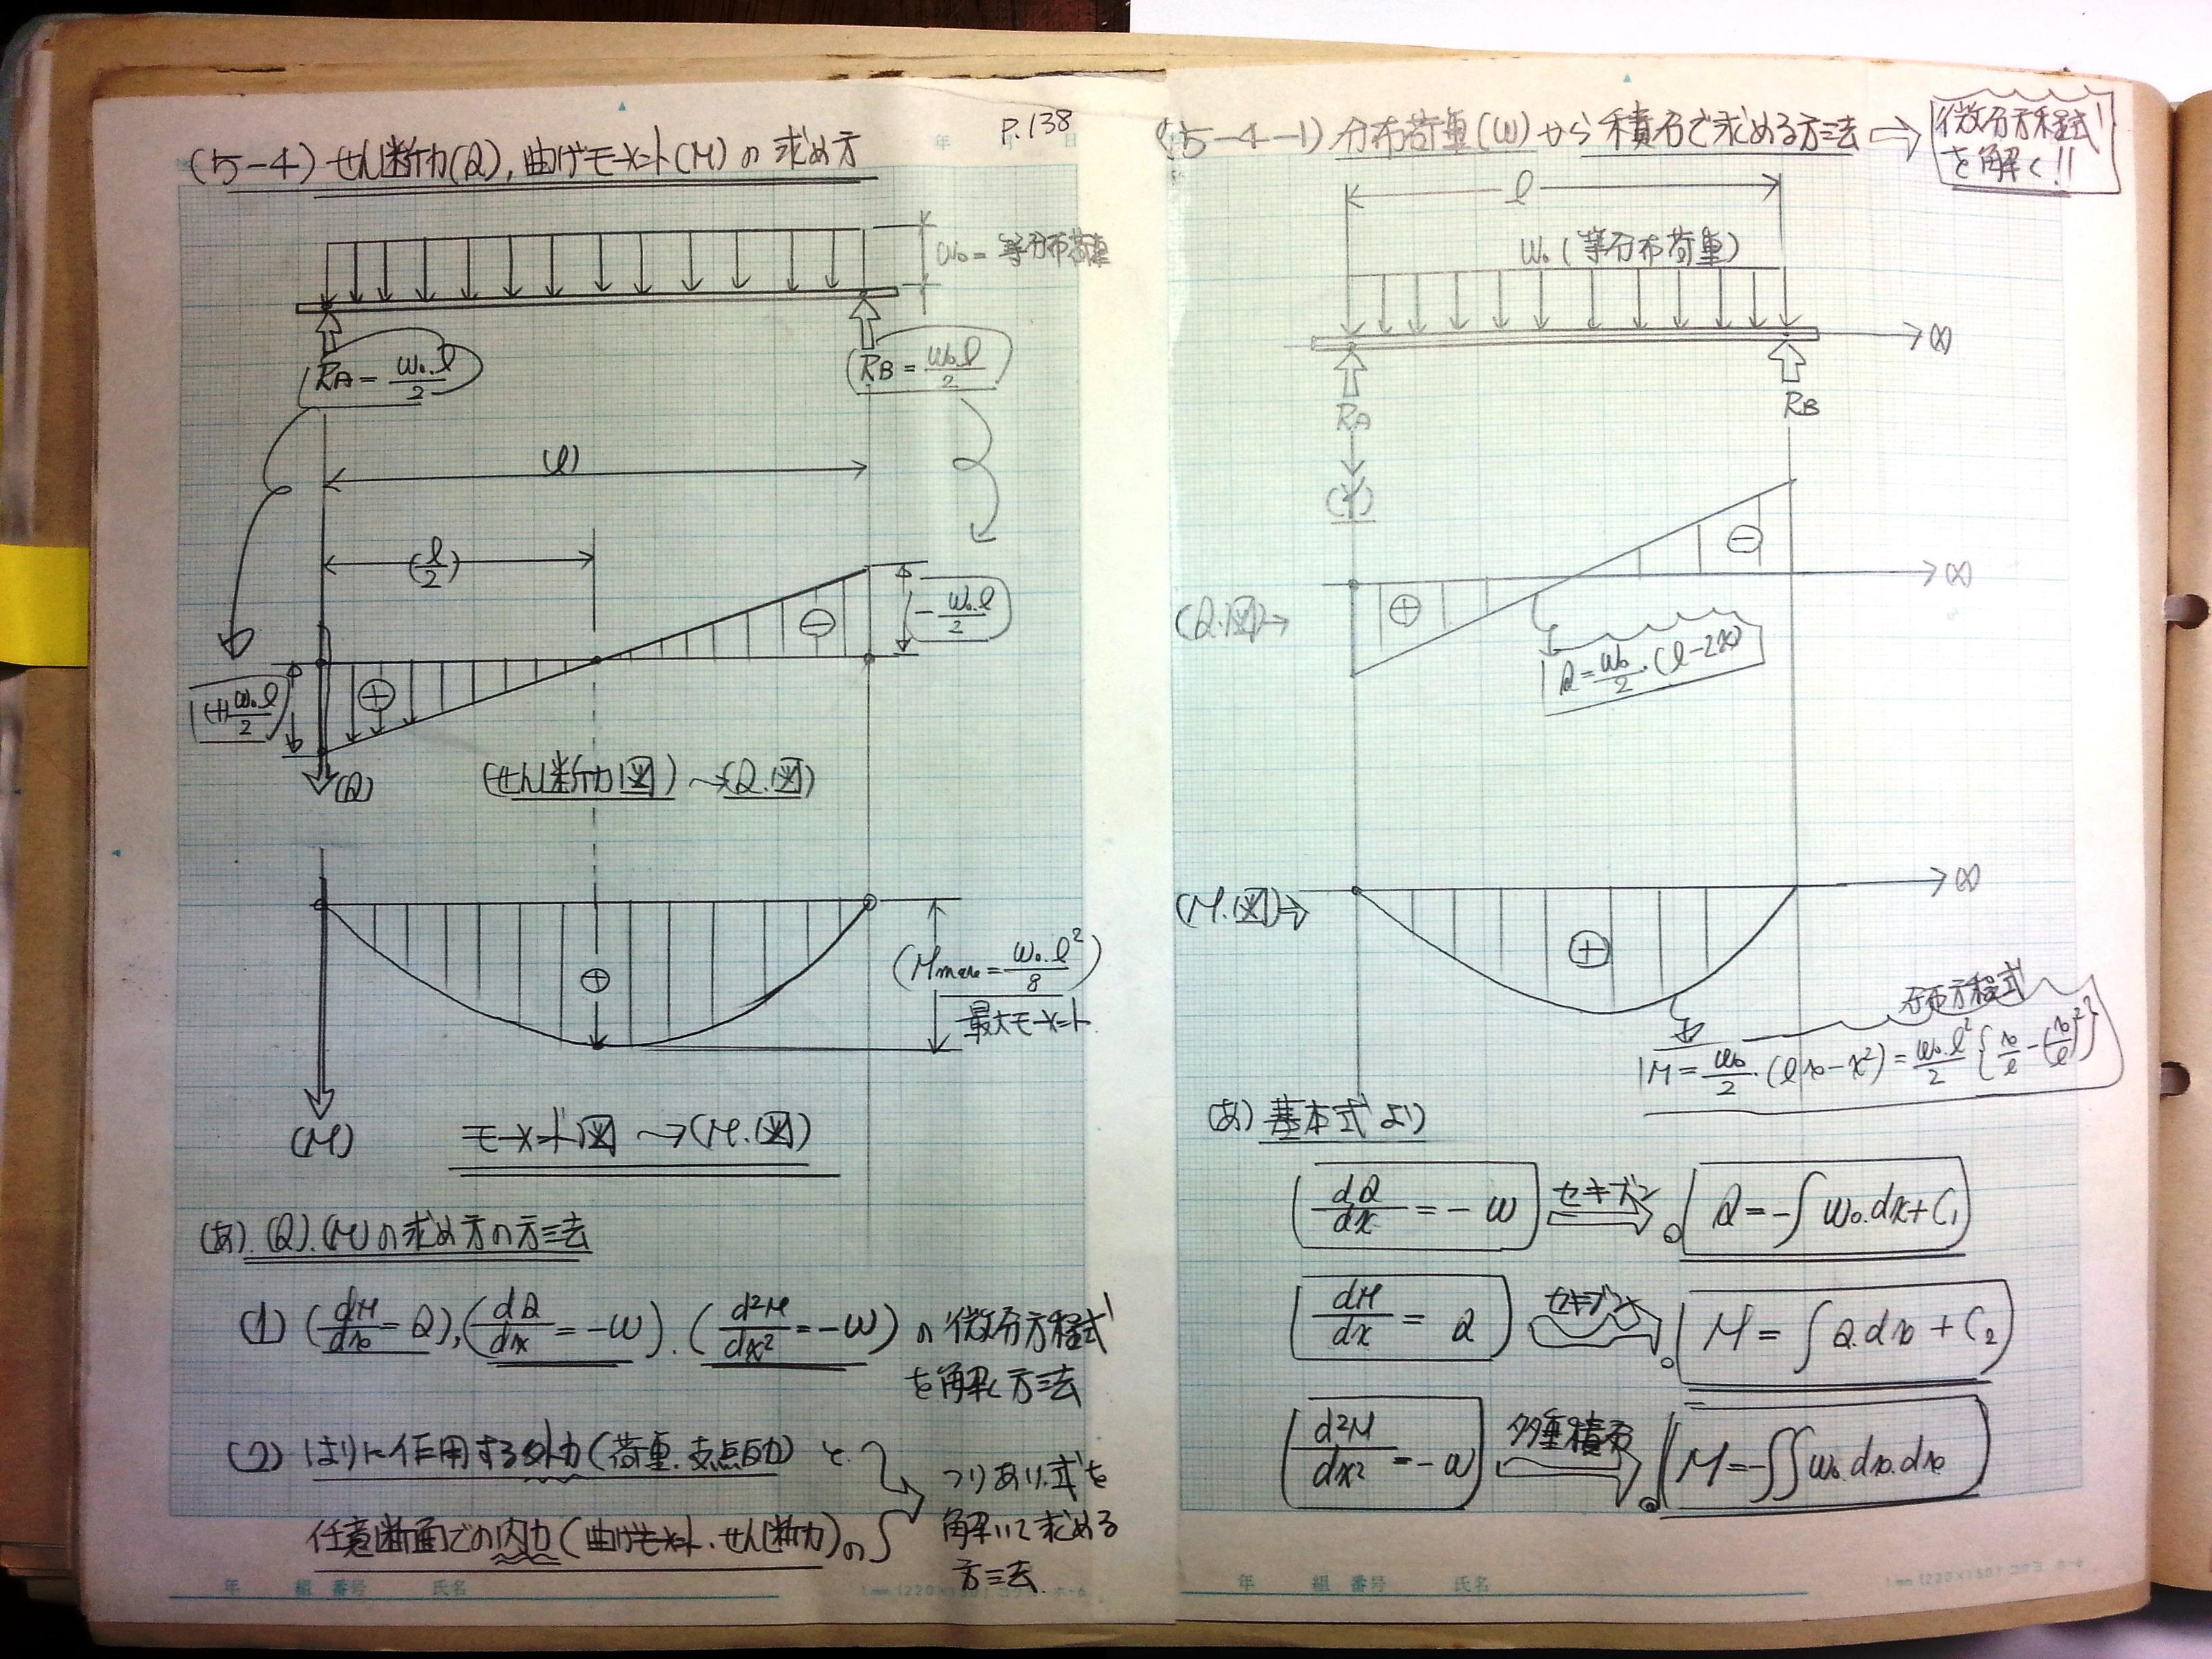 P.138
(5-4) せん断力(Q), 曲げモーメント(M)の求め方
w₀=等分布荷重
RA = w₀.l/2
RB = w₀.l/2
(l)
(l/2)
(-w₀.l/2)
(+)w₀.l/2
⊕
⊖
(Q)
(せん断力図)→Q.図)
⊕
(Mmax = w₀.l²/8)
最大モーメント
(M)
モーメント図→(M.図)
(あ).(Q).(M)の求め方の方法
(1) (dM/dx = Q), (dQ/dx = -w). (d²M/dx² = -w) の微分方程式
を解く方法
(2) はりに作用する外力(荷重.支点反力)と
任意断面での内力(曲げモーメント.せん断力)の
つりあい式を
解いて求める
方法.
年 組 番号 氏名
(5-4-1) 分布荷重(w)から積分で求める方法⇒
微分方程式
を解く!!
l
w₀(等分布荷重)
(x)
RA
RB
(Y)
⊖
(x)
(Q.図)→
⊕
Q = w₀/2.(l-2x)
(x)
(M.図)→
⊕
分布方程式
M = w₀/2.(lx-x²) = w₀.l²/2{x/l-(x/l)²}
(あ) 基本式より
dQ/dx = -w セキブン Q = -∫w₀.dx+C₁
dM/dx = Q セキブン M = ∫Q.dx + C₂
d²M/dx² = -w 多重積分 M = -∫∫w₀.dx.dx
年 組 番号 氏名